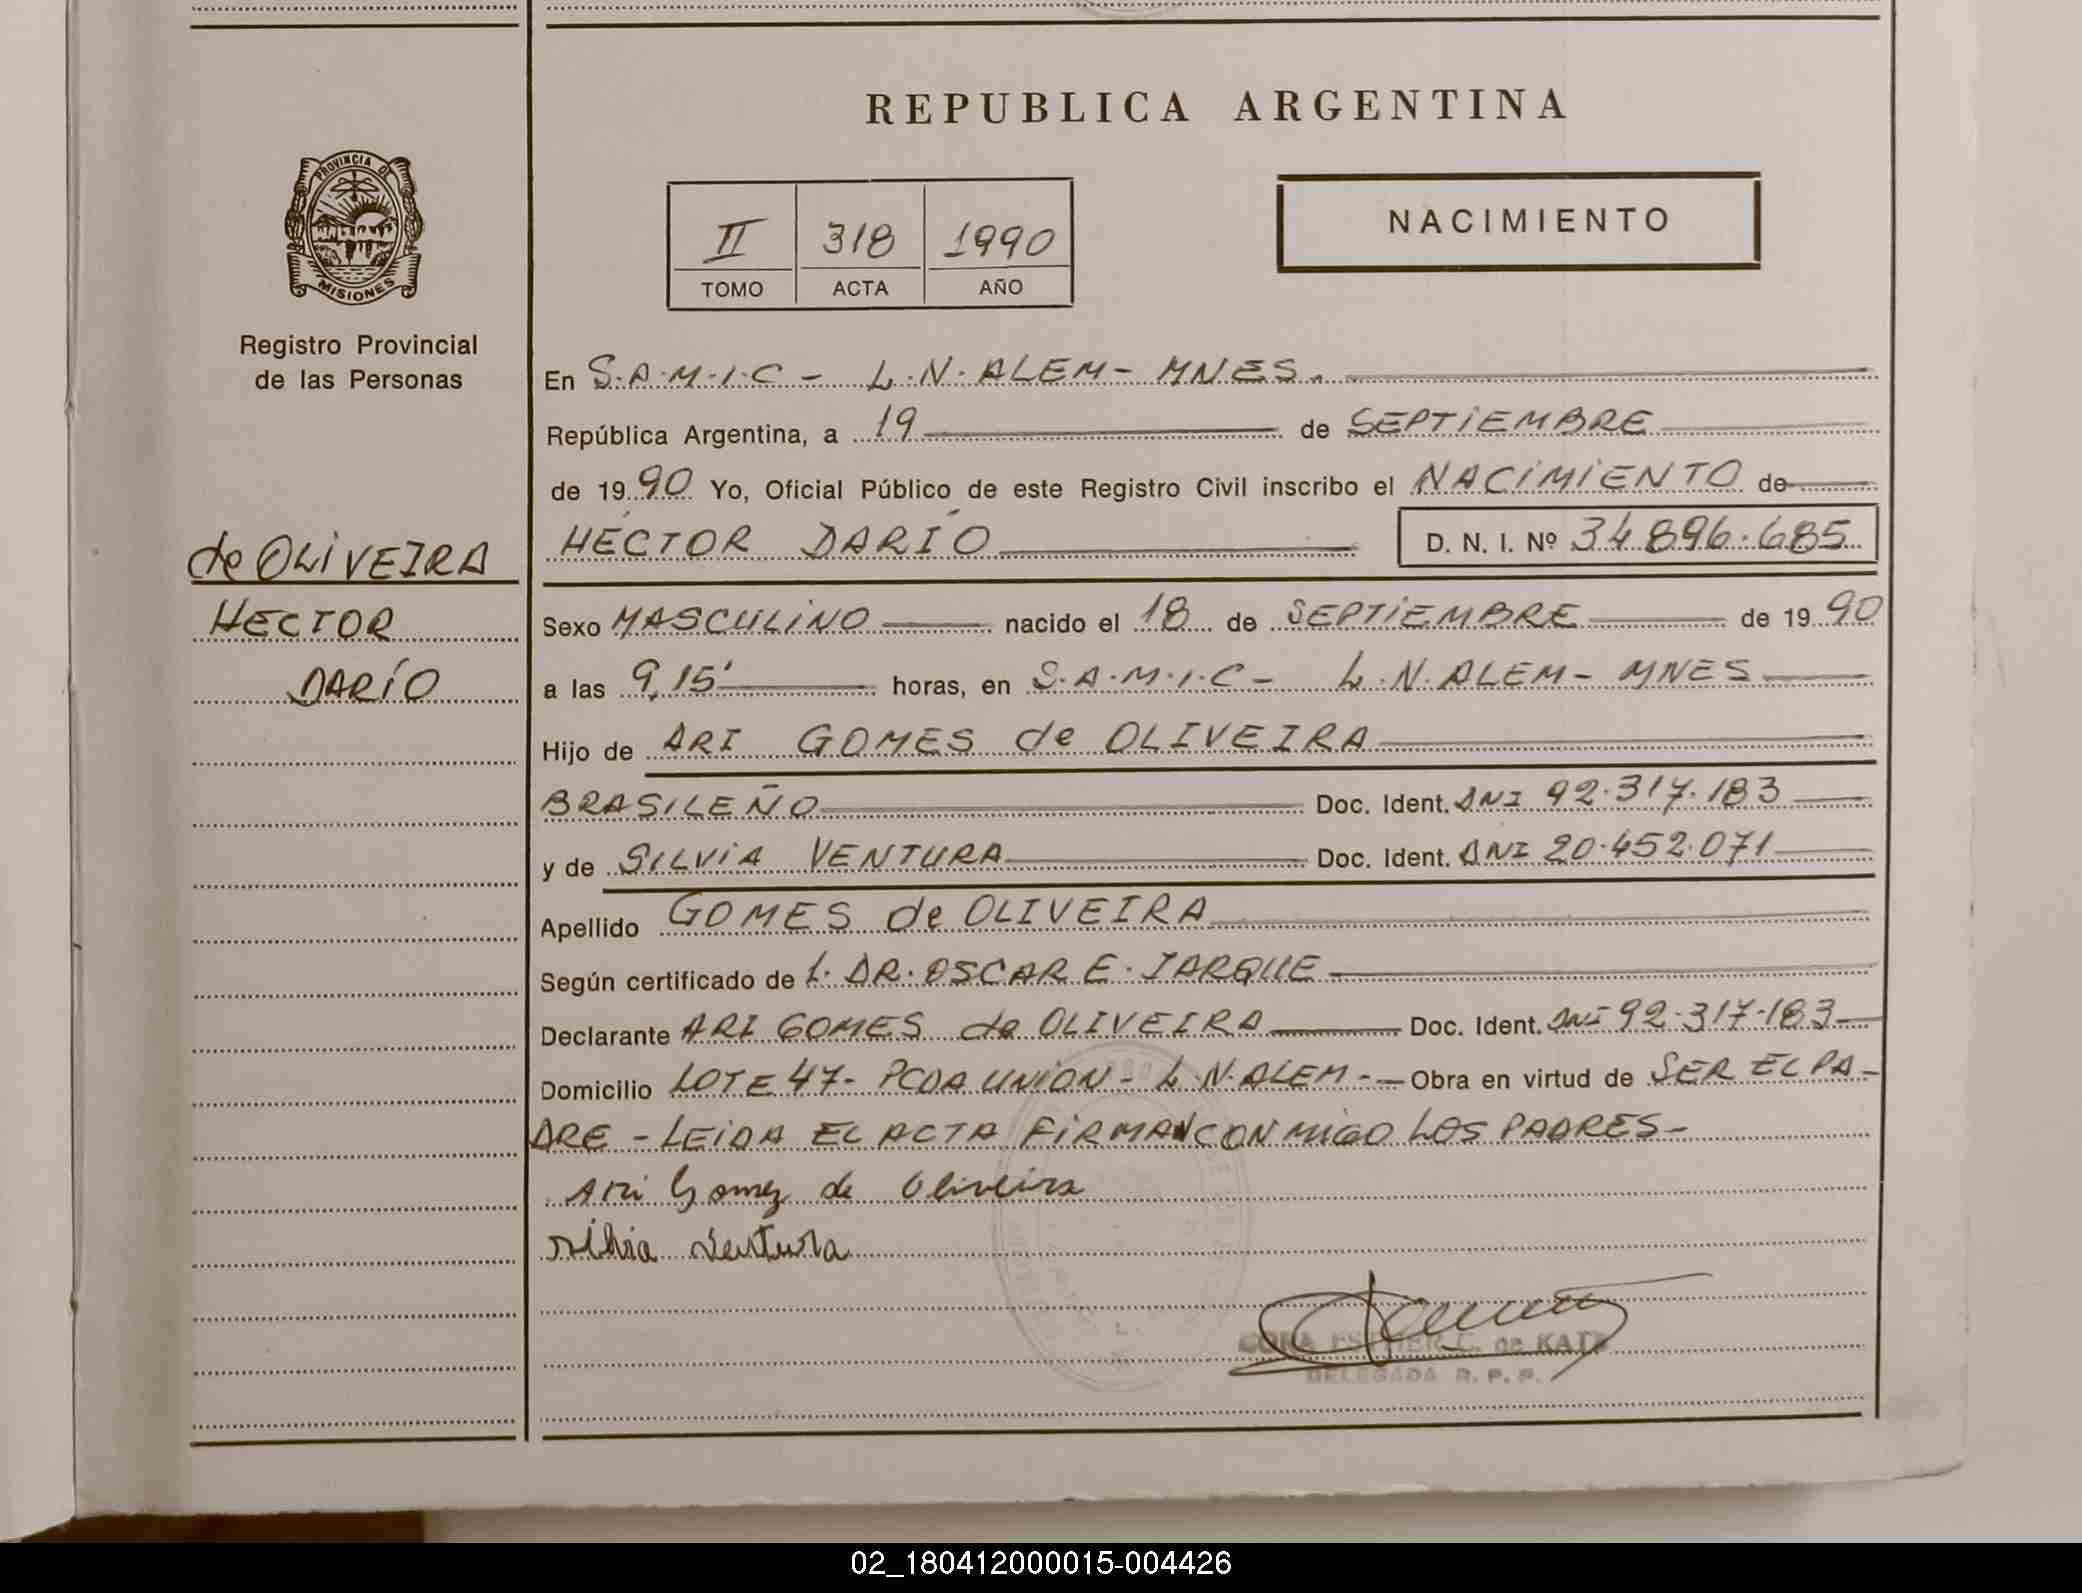 REPUBLICA ARGENTINA
PROVINCIA DE
MISIONES
Registro Provincial
de las Personas
II 318 1990
TOMO ACTA AÑO
NACIMIENTO
En S.A.M.I.C - L.N. ALEM - MNES.
República Argentina, a 19 de SEPTIEMBRE
de 1990 Yo, Oficial Público de este Registro Civil inscribo el NACIMIENTO de
HÉCTOR DARÍO D. N. I. Nº 34.896.685
de OLIVEIRA
HECTOR
DARÍO
Sexo MASCULINO nacido el 18 de SEPTIEMBRE de 1990
a las 9,15' horas, en S.A.M.I.C - L.N. ALEM - MNES
Hijo de ARI GOMES de OLIVEIRA
BRASILEÑO Doc. Ident. DNI 92.317.183
y de SILVIA VENTURA Doc. Ident. DNI 20.452.071
Apellido GOMES de OLIVEIRA
Según certificado de L. DR. OSCAR E. JARQUE
Declarante ARI GOMES de OLIVEIRA Doc. Ident. DNI 92.317.183
Domicilio LOTE 47 - PCDA UNION - L.N. ALEM - Obra en virtud de SER EL PA-
DRE - LEIDA EL ACTA FIRMAN CONMIGO LOS PADRES -
Ari Gomez de Oliveira
silvia ventura
ESTHER C. de KATZ
DELEGADA R. P. P.
02_180412000015-004426